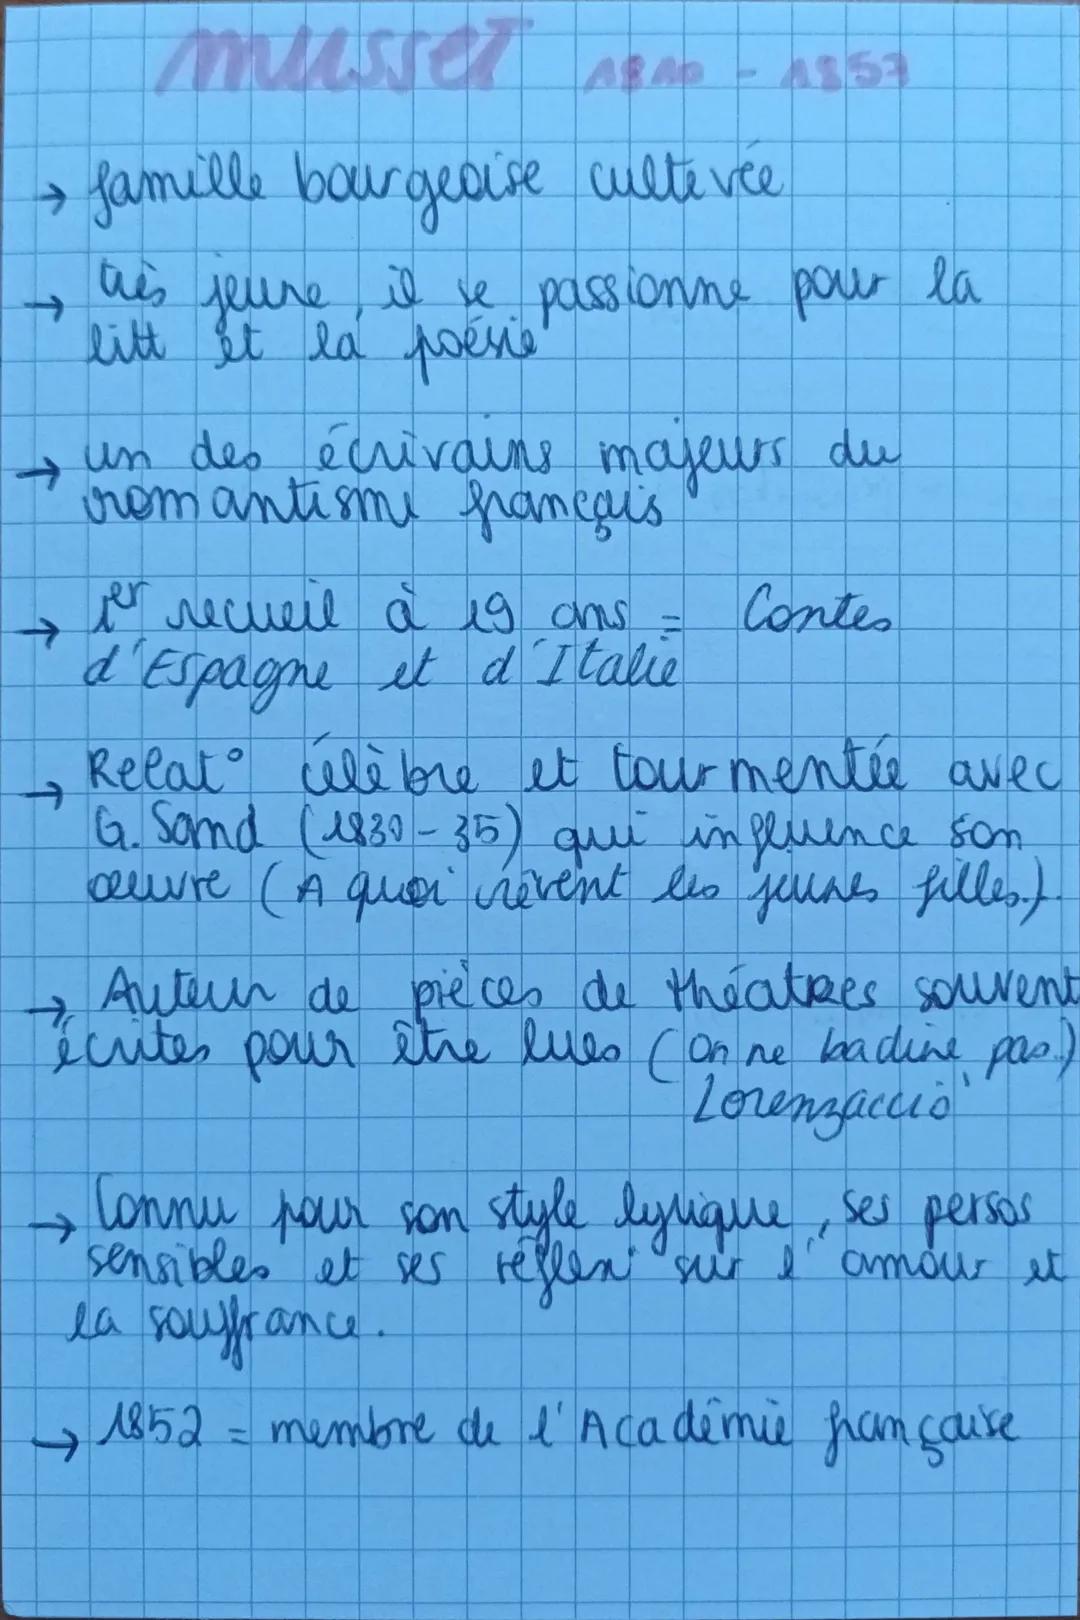 musset 1810 - 1857
→ famille bourgeoise cultivée
→ très jeune, il se passionne pour la
litt et la poésie
→ un des écrivains majeurs du
romantisme français
→ 1er recueil à 19 ans = Contes
d'Espagne et d'Italie
→ Relat° célèbre et tourmentée avec
G. Sand (1830-35) qui influence son
œuvre (A quoi rêvent les jeunes filles.).
→ Auteur de pièces de théatres souvent
écrites pour être lues (On ne badine pas.)
Lorenzaccio
→ Connu pour son style lyrique, ses persos
sensibles et ses réflex° sur l'amour et
la souffrance.
→ 1852 = membre de l'Académie française